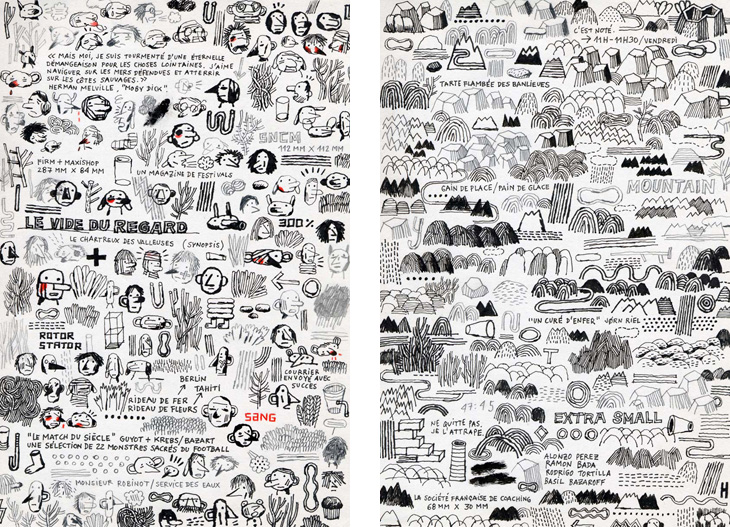 « MAIS MOI, JE SUIS TOURMENTÉ D'UNE ÉTERNELLE
DÉMANGEAISON POUR LES CHOSES LOINTAINES. J'AIME
NAVIGUER SUR LES MERS DÉFENDUES ET ATTERRIR
SUR LES CÔTES SAUVAGES. »
HERMAN MELVILLE, "MOBY DICK".
SNCM
112 MM X 112 MM
FIRM + MAXISHOP
287 MM X 84 MM
UN MAGAZINE DE FESTIVALS
LE VIDE DU REGARD
300%
LE CHARTREUX DES VALLEUSES (SYNOPSIS)
ROTOR
STATOR
COURRIER
ENVOYÉ AVEC
SUCCÈS
BERLIN
TAHITI
RIDEAU DE FER
RIDEAU DE FLEURS
SANG
"LE MATCH DU SIÈCLE" GUYOT + KREBS/BABART
UNE SÉLECTION DE 22 MONSTRES SACRÉS DU FOOTBALL
MONSIEUR ROBINOT/SERVICE DES EAUX
C'EST NOTÉ.
→ 11H-11H30/VENDREDI
TARTE FLAMBÉE DES BANLIEUES
GAIN DE PLACE/PAIN DE GLACE
MOUNTAIN
"UN CURÉ D'ENFER" JØRN RIEL
47:45
NE QUITTE PAS,
JE L'ATTRAPE.
EXTRA SMALL
ALONZO PEREZ
RAMON BADA
RODRIGO TORTILLA
BASIL BAZAROFF
LA SOCIÉTÉ FRANÇAISE DE COACHING
68 MM X 30 MM
H